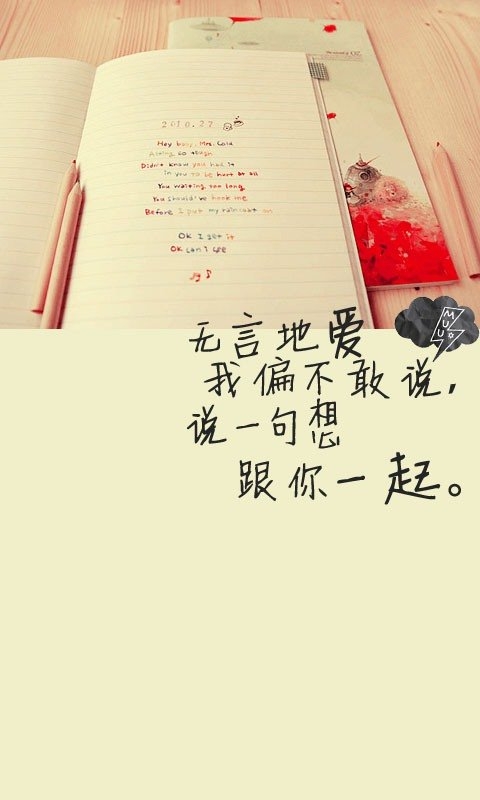 2010.27
Hey baby, Mrs. Cold
Acting so tough
Didn't know you had it
in you to be hurt at all
You waiting too long
You should've hook me
Before I put my raincoat on
OK I get it
OK can I see
无言地爱
我偏不敢说,
说一句想
跟你一起。
MUUO